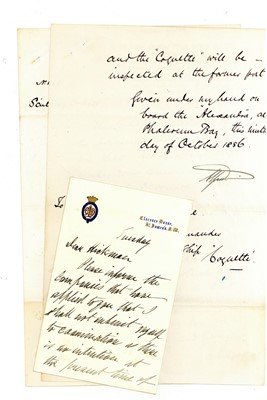 and the "Coquette" will be –
inspected at the former port
Given under my hand on
board the "Alexandra", at
Phalerum Bay, this
day of October 1886.
Clarence House,
St. James's, S.W.
Tuesday
Dear Hickman
Please inform the
Companies that have
applied to you that I
shall not submit myself
to examination as there
is no intention at
the present time of
Ship "Coquette".